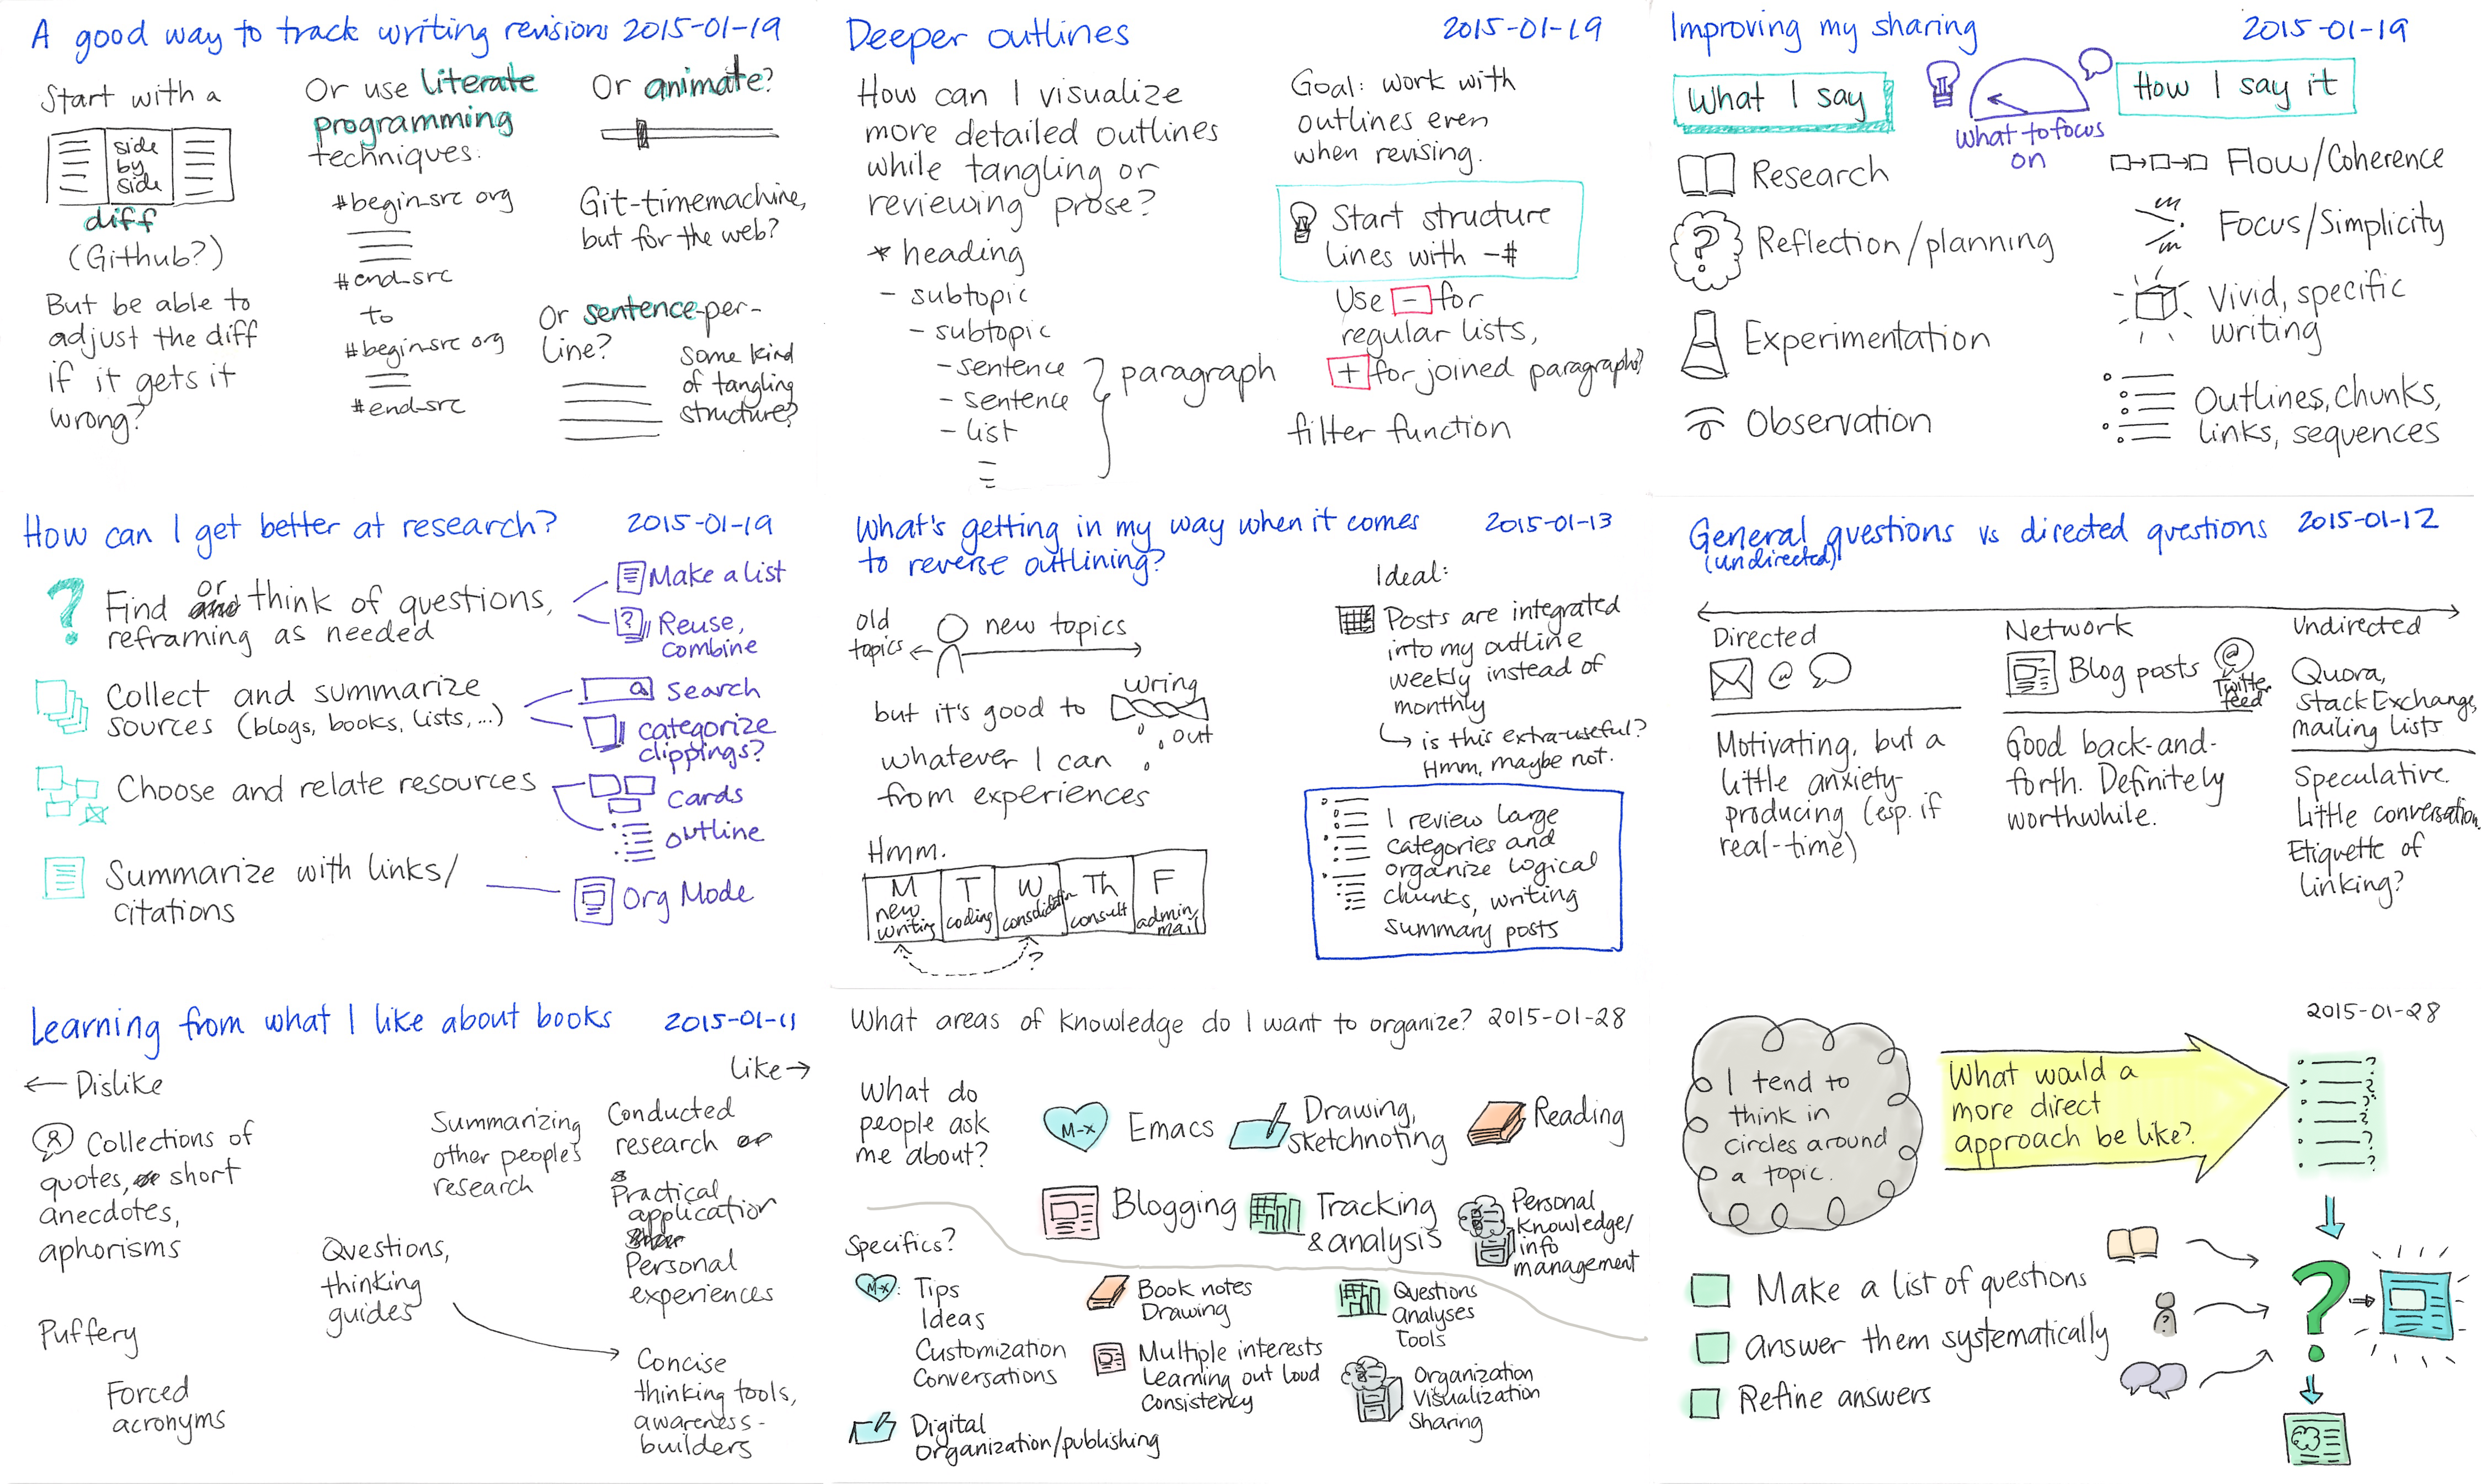 A good way to track writing revisions 2015-01-19
Start with a
side
by
side
diff
(Github?)
But be able to
adjust the diff
if it gets it
wrong?
Or use literate
programming
techniques:
#begin_src org
#end_src
to
#begin_src org
#end_src
Or animate?
Git-timemachine,
but for the web?
Or sentence-per-
line?
some kind
of tangling
structure?
Deeper outlines 2015-01-19
How can I visualize
more detailed outlines
while tangling or
reviewing prose?
* heading
- subtopic
- subtopic
- sentence
- sentence
- list
paragraph
Goal: work with
outlines even
when revising.
Start structure
lines with -#
Use - for
regular lists,
+ for joined paragraphs?
filter function
Improving my sharing 2015-01-19
What I say
what to focus
on
How I say it
Research
Reflection/planning
Experimentation
Observation
Flow/Coherence
Focus/Simplicity
Vivid, specific
writing
Outlines, chunks,
links, sequences
How can I get better at research? 2015-01-19
or
Find and think of questions,
reframing as needed
Make a list
Reuse,
combine
Collect and summarize
sources (blogs, books, lists, ...)
search
categorize
clippings?
Choose and relate resources
cards
outline
Summarize with links/
citations
Org Mode
What's getting in my way when it comes 2015-01-13
to reverse outlining?
old
topics
new topics
but it's good to wring
out
whatever I can
from experiences
Hmm.
M
new
writing
T
coding
W
consolidation
Th
consult
F
admin,
mail
?
Ideal:
Posts are integrated
into my outline
weekly instead of
monthly
is this extra-useful?
Hmm, maybe not.
I review large
categories and
organize logical
chunks, writing
summary posts
General questions vs directed questions 2015-01-12
(undirected)
Directed
@
Motivating, but a
little anxiety-
producing (esp. if
real-time)
Network
Blog posts
@
Twitter
feed
Good back-and-
forth. Definitely
worthwhile.
Undirected
Quora,
StackExchange,
mailing lists
Speculative.
Little conversation.
Etiquette of
linking?
Learning from what I like about books 2015-01-11
← Dislike
Like →
Collections of
quotes, or short
anecdotes,
aphorisms
Puffery
Forced
acronyms
Questions,
thinking
guides
Summarizing
other people's
research
Conducted
research or
Practical
application
Personal
experiences
Concise
thinking tools,
awareness-
builders
What areas of knowledge do I want to organize? 2015-01-28
What do
people ask
me about?
M-x
Emacs
Drawing,
sketchnoting
Reading
Blogging
Tracking
& analysis
Personal
knowledge/
info
management
Specifics?
M-x:
Tips
Ideas
Customization
Conversations
Digital
Organization/publishing
Book notes
Drawing
Multiple interests
Learning out loud
Consistency
Questions
Analyses
Tools
Organization
Visualization
Sharing
2015-01-28
I tend to
think in
circles around
a topic.
What would a
more direct
approach be like?
?
?
?
?
?
?
Make a list of questions
Answer them systematically
Refine answers
?